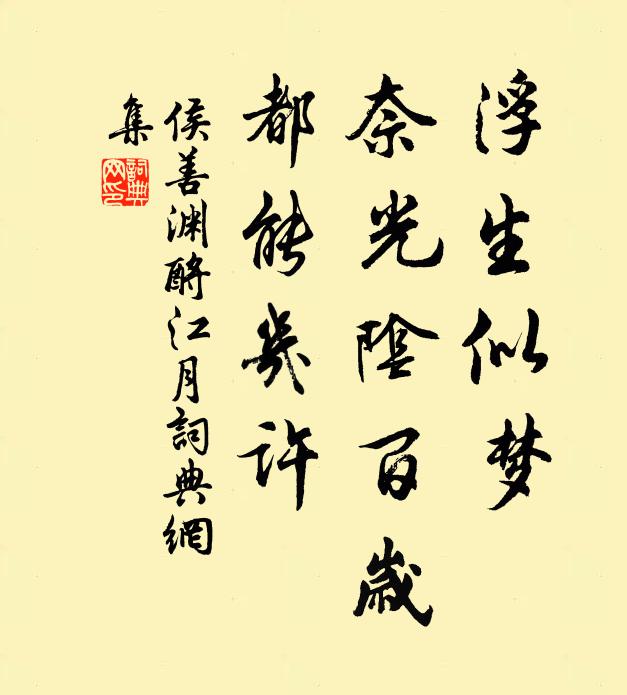 浮生似梦
奈光陰百歲
都能幾許
侯善渊酹江月詞典網
集
詞典网印